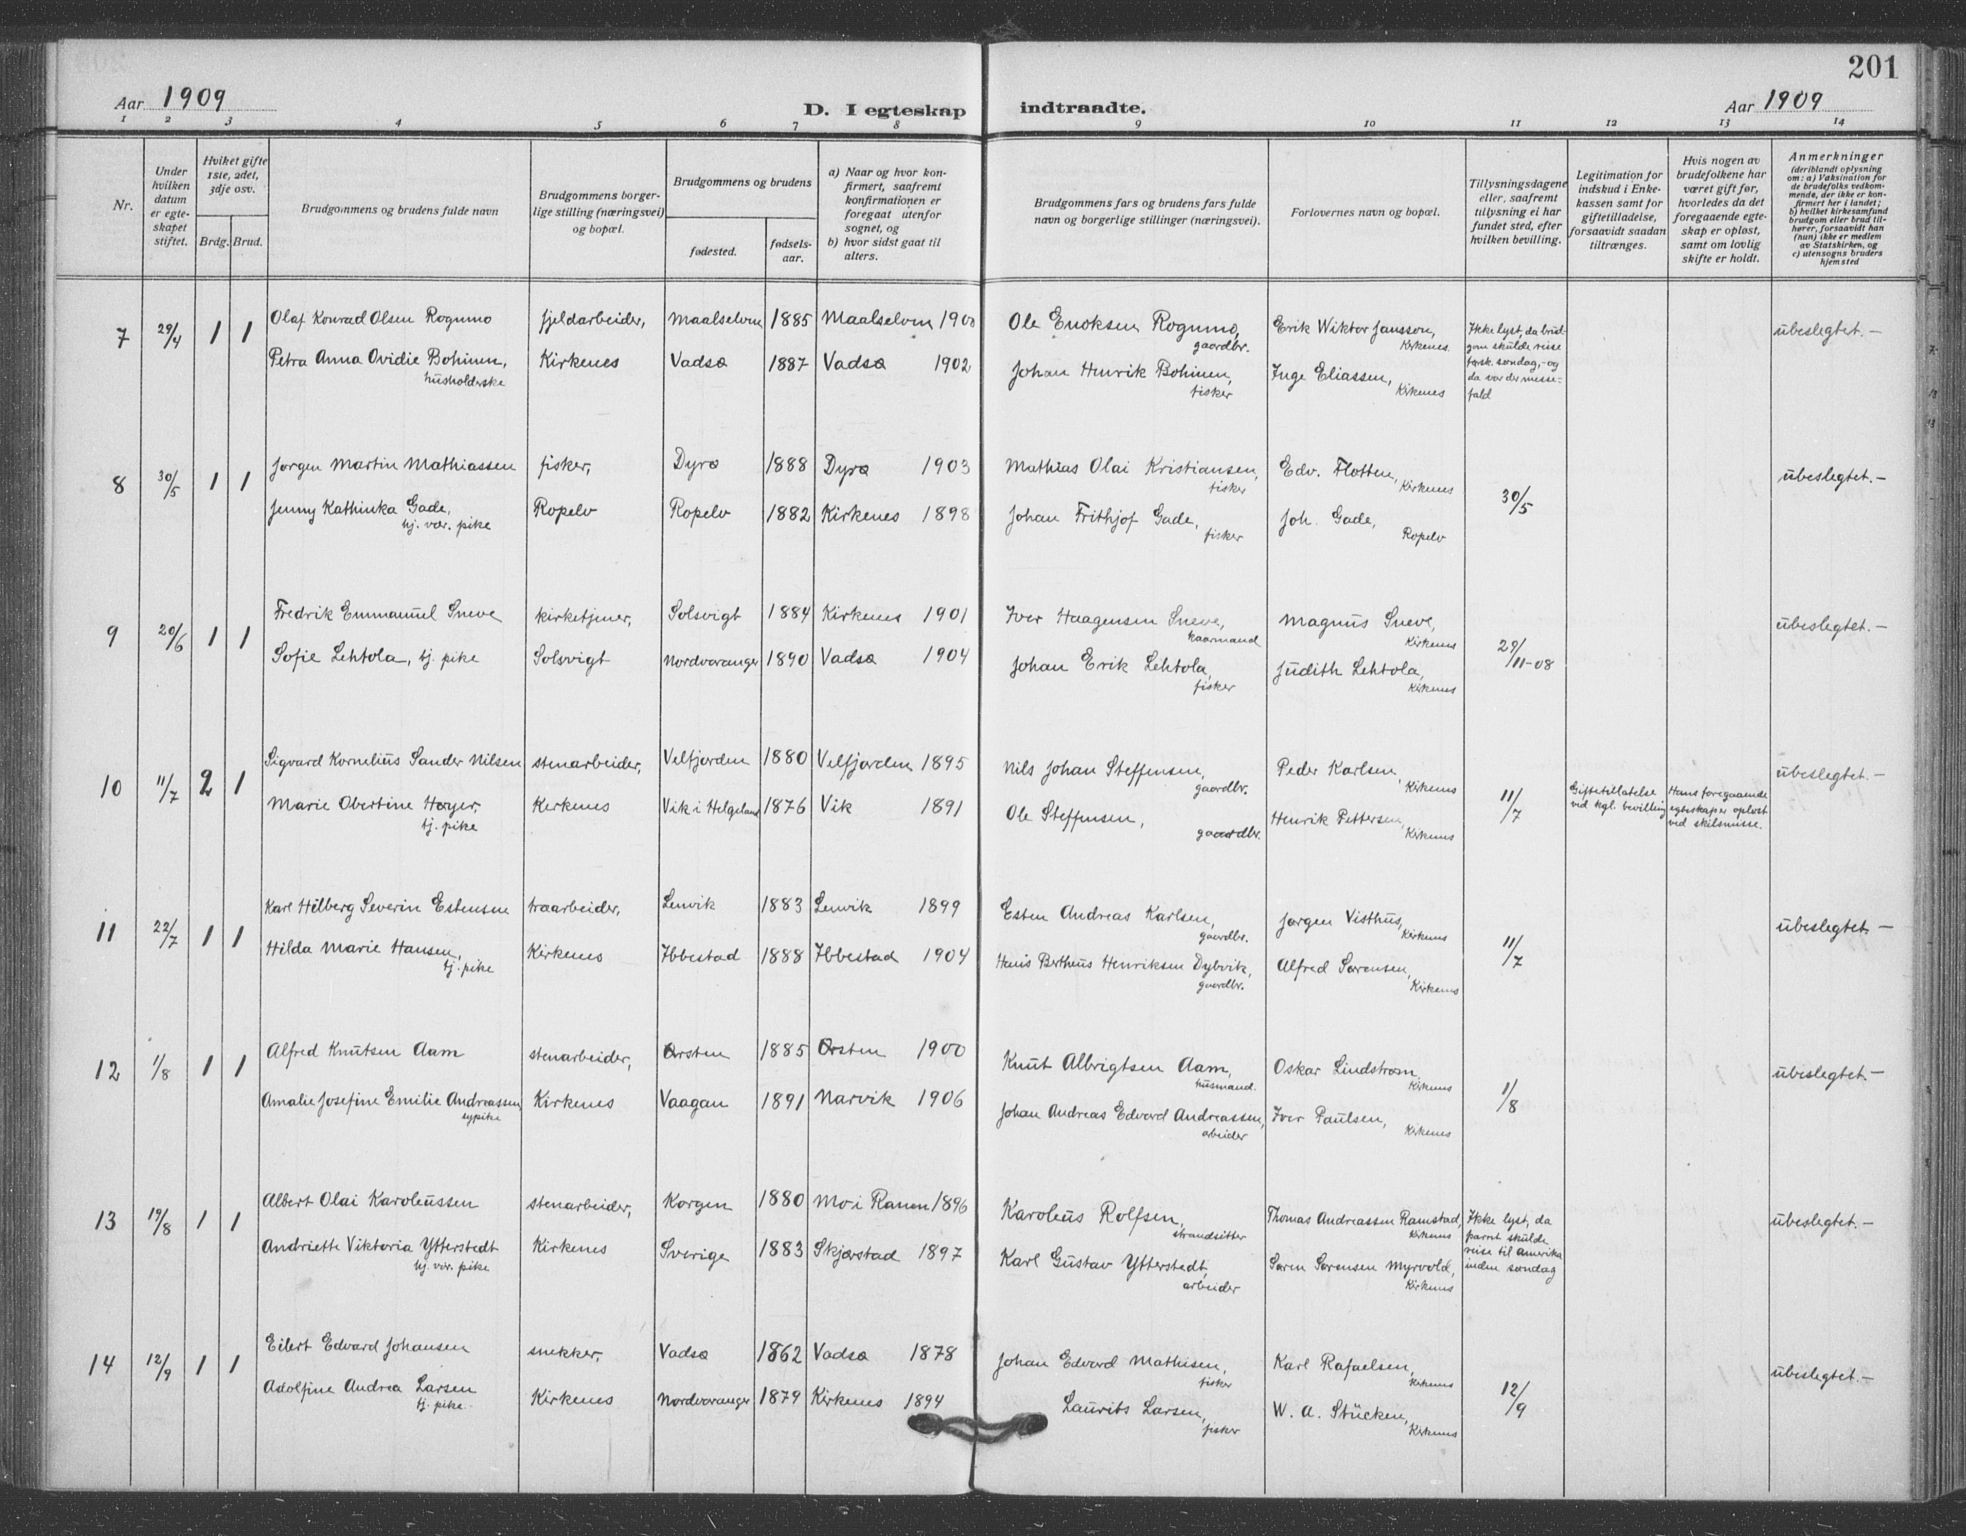 201
Aar 1909
D. I egteskap indtraadte.
Aar 1909
1 2 3 4 5 6 7 8 9 10 11 12 13 14
Nr.
Under hvilken datum er egteskapet stiftet.
Hviket gifte 1ste, 2det, 3dje osv.
Brdg. Brud.
Brudgommens og brudens fulde navn
Brudgommens borgerlige stilling (næringsvei) og bopæl.
Brudgommens og brudens
fødested.
fødselsaar.
a) Naar og hvor konfirmert, saafremt konfirmationen er foregaat utenfor sognet, og
b) hvor sidst gaat til alters.
Brudgommens fars og brudens fars fulde navn og borgerlige stillinger (næringsvei).
Forlovernes navn og bopæl.
Tillysningsdagene eller, saafremt tillysning ei har fundet sted, efter hvilken bevilling.
Legitimation for indskud i Enkekassen samt for giftetilladelse, forsaavidt saadan tiltrænges.
Hvis nogen av brudefolkene har været gift før, hvorledes da det foregaaende egteskap er opløst, samt om lovlig skifte er holdt.
Anmerkninger
(deriblandt oplysning om: a) Vaksination for de brudefolks vedkommende, der ikke er konfirmert her i landet; b) hvilket kirkesamfund brudgom eller brud tilhører, forsaavidt han (hun) ikke er medlem av Statskirken, og c) utensogns bruders hjemsted
7 29/4 1 1 Olaf Konrad Olsen Rognmo fjeldarbeider, Maalselven 1885 Maalselven 1900 Ole Enoksen Rognmo, gaardbr. Erik Wiktor Jansson, Kirkenes. Ikke lyst, da brudgom skulde reise førsk. søndag, - og da var der messefald ubeslegtet. -
Petra Anna Ovidie Bohinen, husholderske Kirkenes Vadsø 1887 Vadsø 1902 Johan Henrik Bohinen, fisker Inge Eliassen, Kirkenes
8 30/5 1 1 Jørgen Martin Mathiassen fisker, Dyrø 1888 Dyrø 1903 Mathias Olai Kristiansen, fisker Edv. Flotten, Kirkenes 30/5 ubeslegtet. -
Jenny Kathinka Gade, hj. vær. pike Ropelv Ropelv 1882 Kirkenes 1898 Johan Frithjof Gade, fisker Joh. Gade, Ropelv
9 20/6 1 1 Fredrik Emmanuel Sneve kirketjener, Solsvigt 1884 Kirkenes 1901 Iver Haagensen Sneve, kaarmand Magnus Sneve, Kirkenes 29/11-08 ubeslegtet. -
Sofie Lehtola, tj. pike Solsvigt Nordvaranger 1890 Vadsø 1904 Johan Erik Lehtola, fisker Judith Lehtola, Kirkenes
10 11/7 2 1 Sigvard Kornelius Sander Nilsen stenarbeider, Velfjorden 1880 Velfjorden 1895 Nils Johan Steffensen, gaardbr. Peder Karlsen, Kirkenes 11/7 Giftetillatelse ved kgl. bevilling Hans foregaaende egteskap er opløst ved skilsmisse. ubeslegtet. -
Marie Obertine Høyer, tj. pike Kirkenes Vik i Helgeland 1876 Vik 1891 Ole Steffensen, gaardbr. Henrik Pettersen, Kirkenes
11 22/7 1 1 Karl Hilberg Severin Estensen traarbeider, Lenvik 1883 Lenvik 1899 Esten Andreas Karlsen, gaardbr. Jørgen Visthus, Kirkenes 11/7 ubeslegtet. -
Hilda Marie Hansen, tj. pike Kirkenes Ibbestad 1888 Ibbestad 1904 Hans Bertheus Henriksen Dybvik, gaardbr. Alfred Sørensen, Kirkenes
12 1/8 1 1 Alfred Knutsen Aam stenarbeider, Ørsten 1885 Ørsten 1900 Knut Albrigtsen Aam, husmand. Oskar Lindstrøm Kirkenes 1/8 ubeslegtet. -
Amalie Josefine Emilie Andreassen sypike Kirkenes Vaagan 1891 Narvik 1906 Johan Andreas Edvard Andreassen, arbeider Iver Paulsen, Kirkenes
13 19/8 1 1 Albert Olai Karoleussen stenarbeider, Korgen 1880 Mo i Ranen 1896 Karoleus Rolfsen, strandsitter Thomas Andreassen Ramstad, Kirkenes Ikke lyst, da parret skulde reise til Amerika inden søndag ubeslegtet. -
Andriette Viktoria Ytterstedt hj. vær. pike Kirkenes Sverige 1883 Skjerstad 1897 Karl Gustav Ytterstedt, arbeider Søren Sørensen Myrvold, Kirkenes
14 12/9 1 1 Eilert Edvard Johansen snekker, Vadsø 1862 Vadsø 1878 Johan Edvard Mathisen, fisker Karl Rafaelsen, Kirkenes 12/9 ubeslegtet. -
Adolfine Andrea Larsen tj. pike. Kirkenes Nordvaranger 1879 Kirkenes 1894 Laurits Larsen, fisker W. A. Stücken, Kirkenes